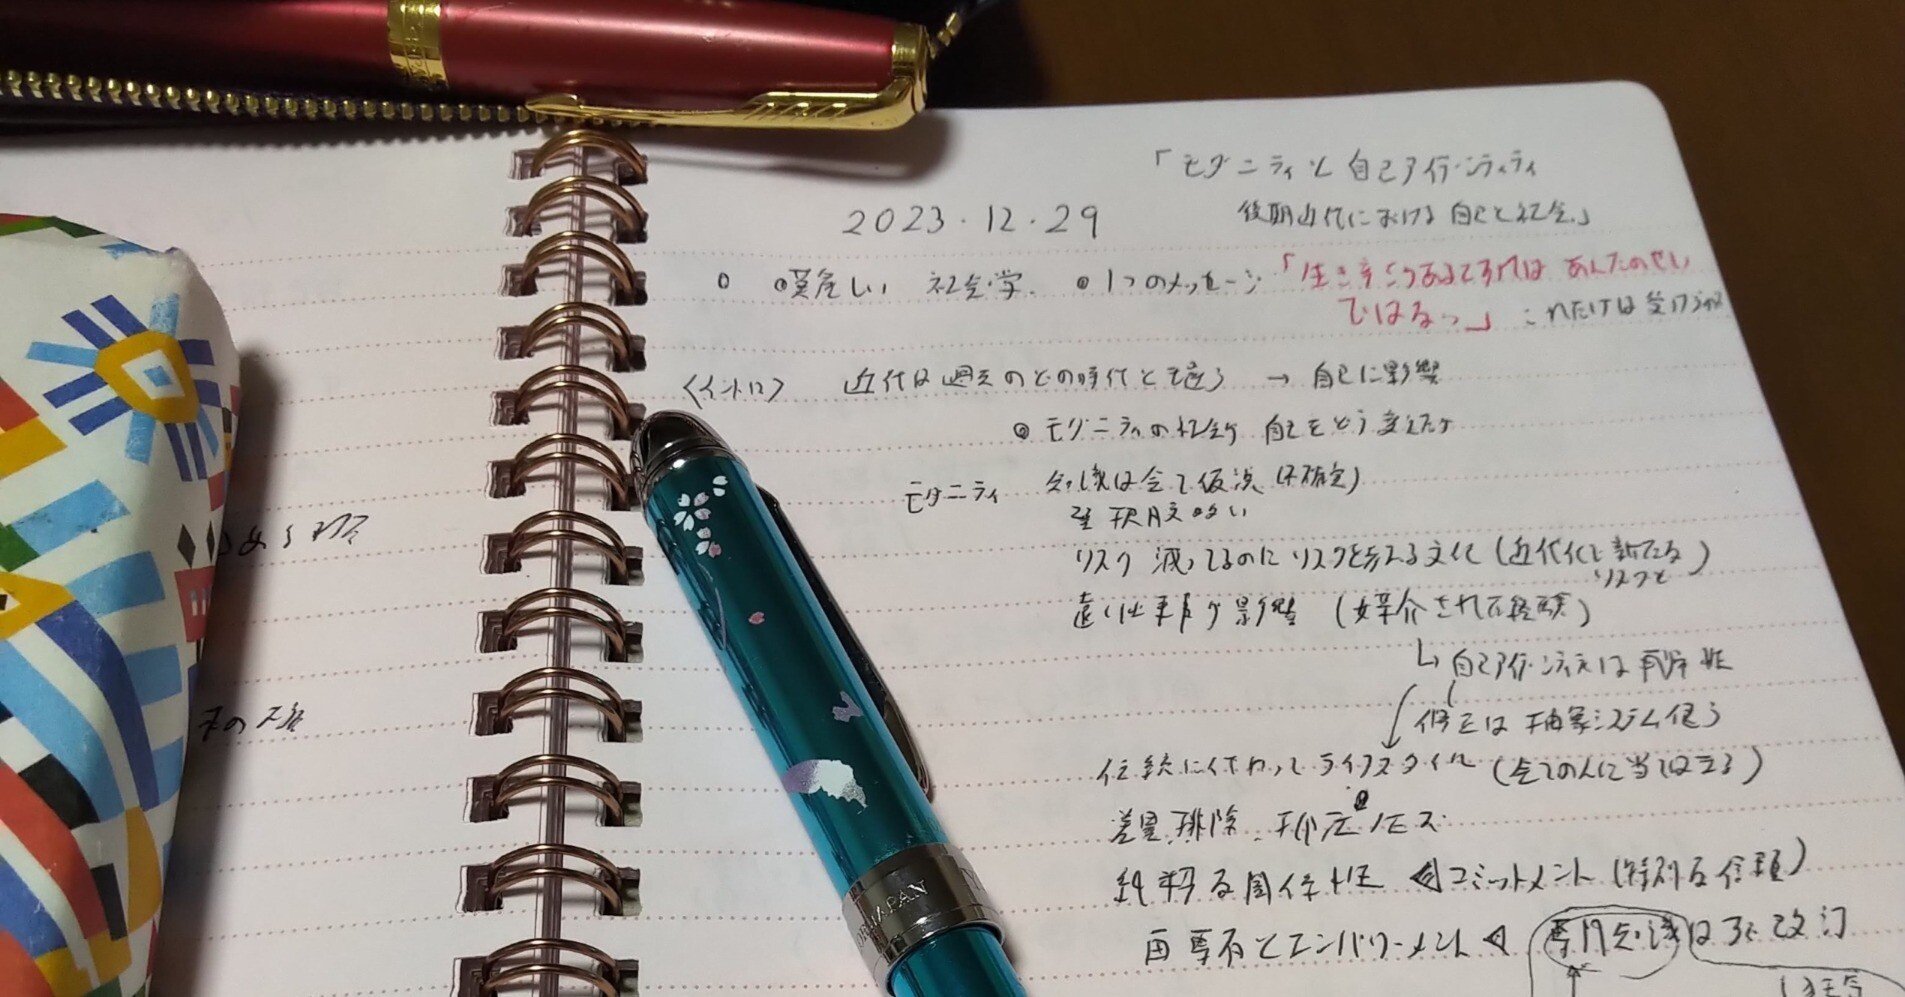 「モダニティと自己アイデンティティ
2023.12.29
後期近代における自己と社会」
優しい社会学 ◎1つのメッセージ「生きづらさあるとすればあんたのせい
ではない」これだけは
〈イントロ〉 近代は過去のどの時代と違う → 自己に影響
◎モダニティの社会が自己をどう変えたか
モダニティ 知識は全て仮説(不確定)
選択肢多い
リスク減ってるのにリスクを考える文化(近代化と新たな
リスクと)
遠い出来事が影響(媒介された経験)
↳自己アイデンティティは再帰性
修正は抽象システム使う
伝統に代わってライフスタイル(全ての人に当てはまる)
差異、排除、
純粋な関係性 コミットメント(特別な信頼)
再専有とエンパワーメント
専門知識は改訂
JAPAN